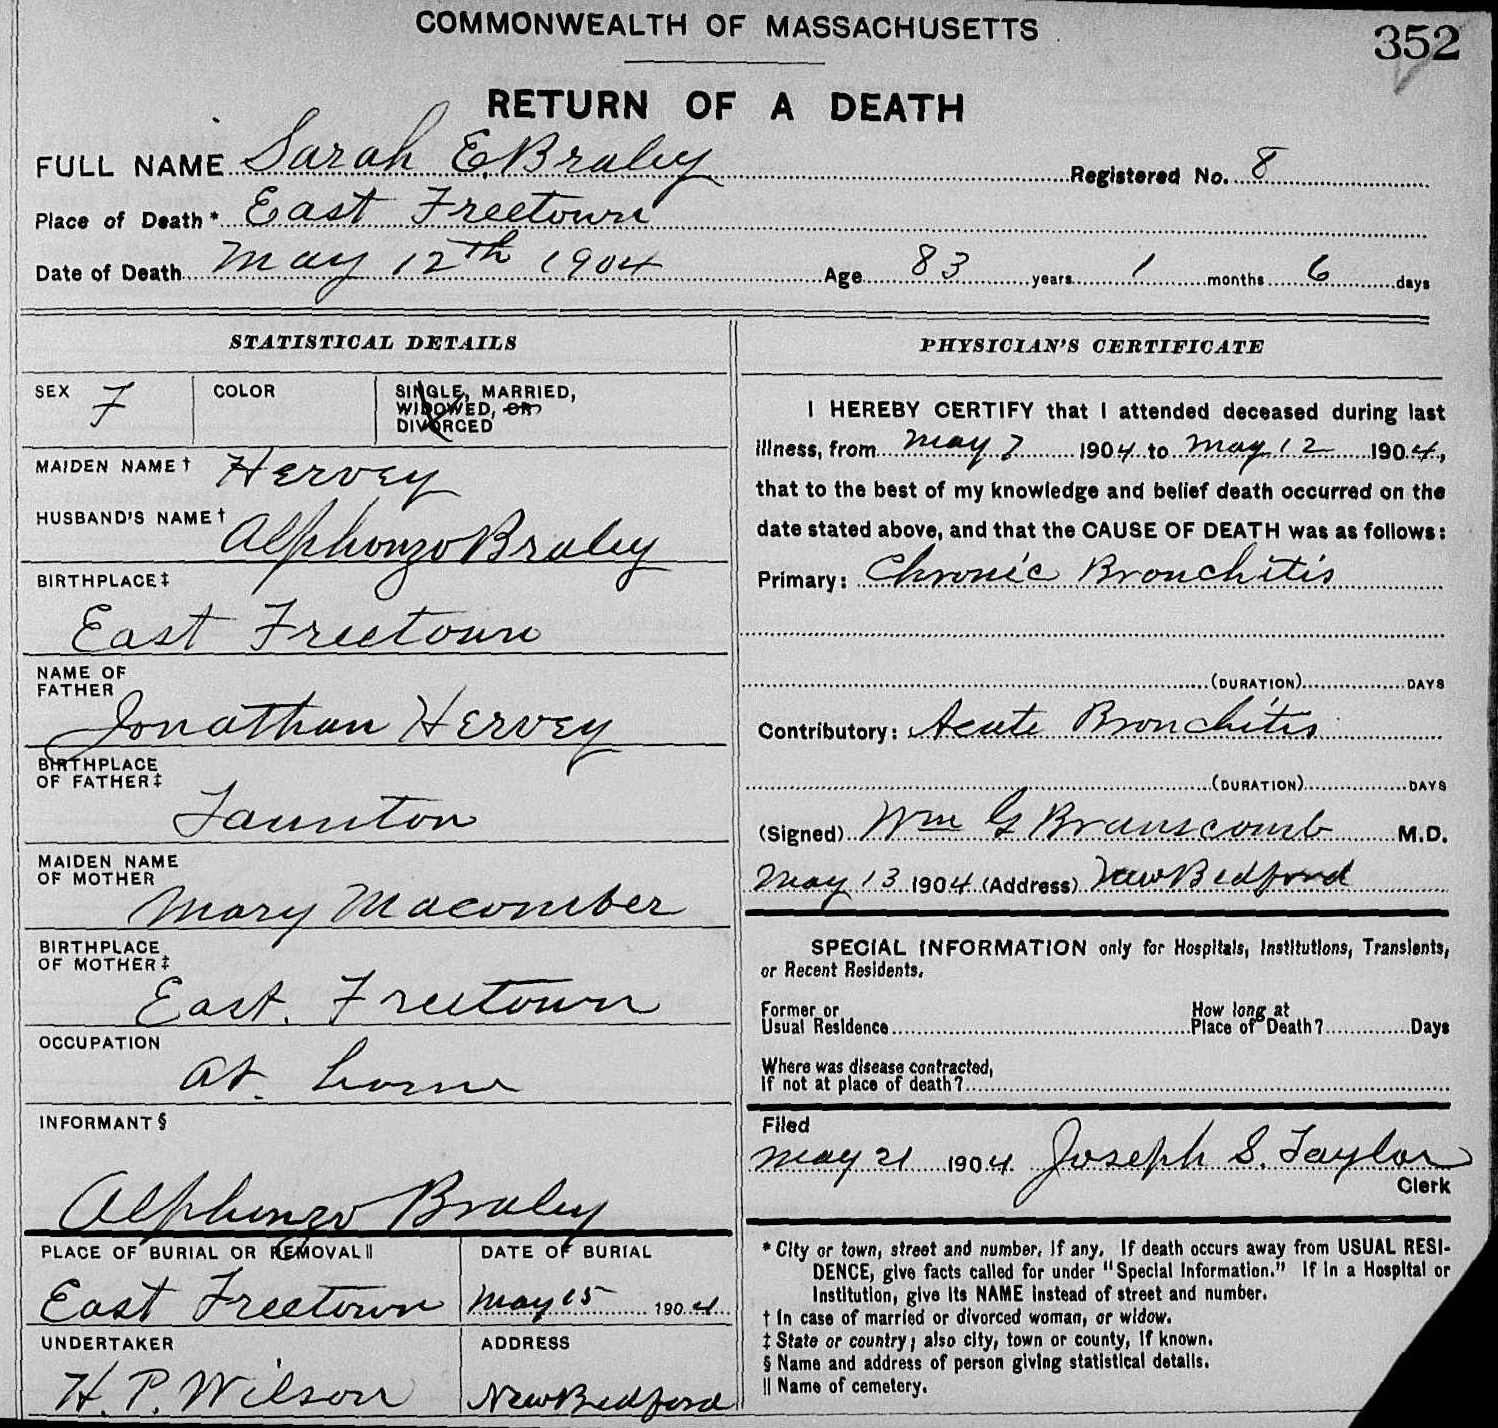 COMMONWEALTH OF MASSACHUSETTS
352
RETURN OF A DEATH
FULL NAME Sarah E. Braley Registered No. 8
Place of Death* East Freetown
Date of Death May 12th 1904 Age 83 years 1 months 6 days
STATISTICAL DETAILS
SEX F COLOR SINGLE, MARRIED,
WIDOWED, OR
DIVORCED
MAIDEN NAME† Hervey
HUSBAND'S NAME† Alphonzo Braley
BIRTHPLACE‡
East Freetown
NAME OF
FATHER
Jonathan Hervey
BIRTHPLACE
OF FATHER‡
Taunton
MAIDEN NAME
OF MOTHER
Mary Macomber
BIRTHPLACE
OF MOTHER‡
East. Freetown
OCCUPATION
at. home
INFORMANT§
Alphonzo Braley
PLACE OF BURIAL OR REMOVAL‖ DATE OF BURIAL
East Freetown May 15 1904
UNDERTAKER ADDRESS
H. P. Wilson New Bedford
PHYSICIAN'S CERTIFICATE
I HEREBY CERTIFY that I attended deceased during last
illness, from May 7 1904 to May 12 1904,
that to the best of my knowledge and belief death occurred on the
date stated above, and that the CAUSE OF DEATH was as follows:
Primary: Chronic Bronchitis
(DURATION) DAYS
Contributory: Acute Bronchitis
(DURATION) DAYS
(Signed) Wm G Branscomb M.D.
May 13 1904 (Address) New Bedford
SPECIAL INFORMATION only for Hospitals, Institutions, Transients,
or Recent Residents.
Former or How long at
Usual Residence Place of Death? Days
Where was disease contracted,
If not at place of death?
Filed
May 21 1904 Joseph S. Taylor
Clerk
* City or town, street and number, if any. If death occurs away from USUAL RESI-
DENCE, give facts called for under "Special Information." If in a Hospital or
Institution, give its NAME instead of street and number.
† In case of married or divorced woman, or widow.
‡ State or country; also city, town or county, if known.
§ Name and address of person giving statistical details.
‖ Name of cemetery.